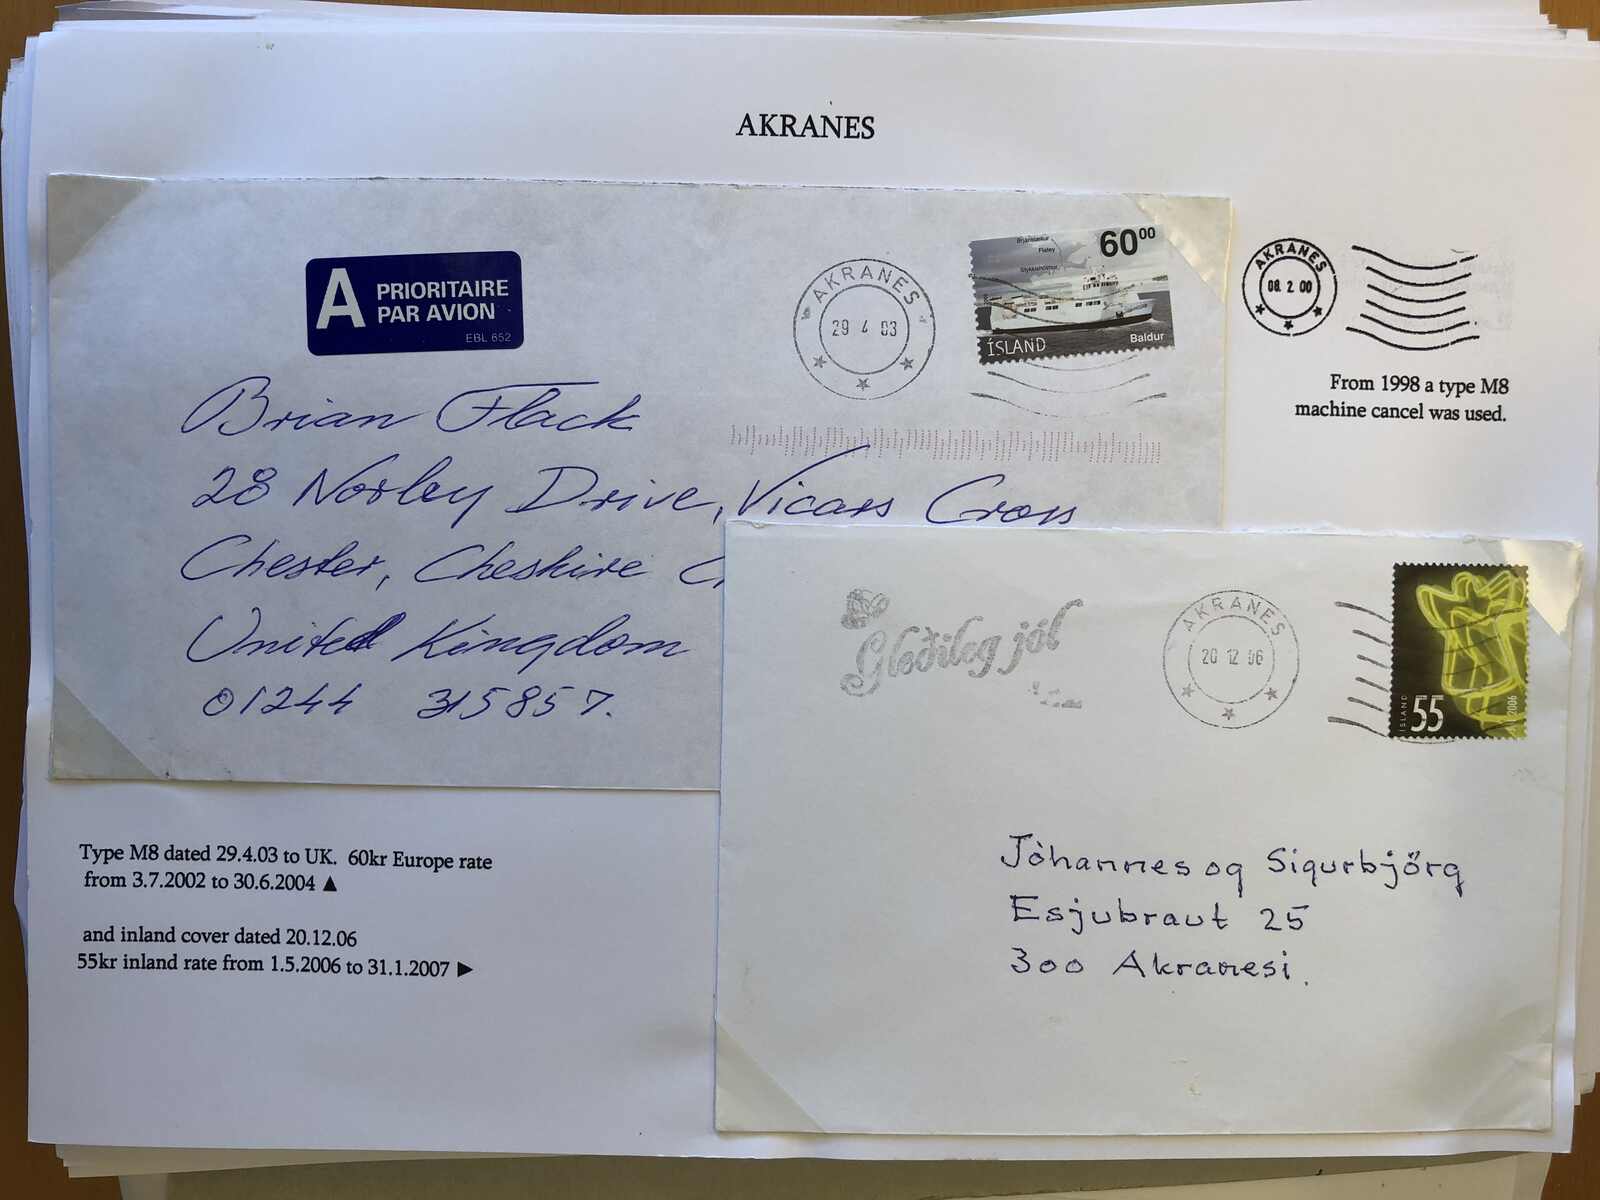 AKRANES
A PRIORITAIRE
PAR AVION
EBL 652
AKRANES
29 4 03
Brjánslækur
Flatey
Stykkishólmur
60⁰⁰
ÍSLAND
Baldur
AKRANES
08. 2. 00
From 1998 a type M8
machine cancel was used.
Brian Flack
28 Norley Drive, Vicars Cross
Chester, Cheshire
United Kingdom
01244 315857.
Gleðileg jól
AKRANES
20 12 06
ÍSLAND
55
2006
Jóhannes og Sigurbjörg
Esjubraut 25
300 Akranesi.
Type M8 dated 29.4.03 to UK. 60kr Europe rate
from 3.7.2002 to 30.6.2004 ▲
and inland cover dated 20.12.06
55kr inland rate from 1.5.2006 to 31.1.2007 ►